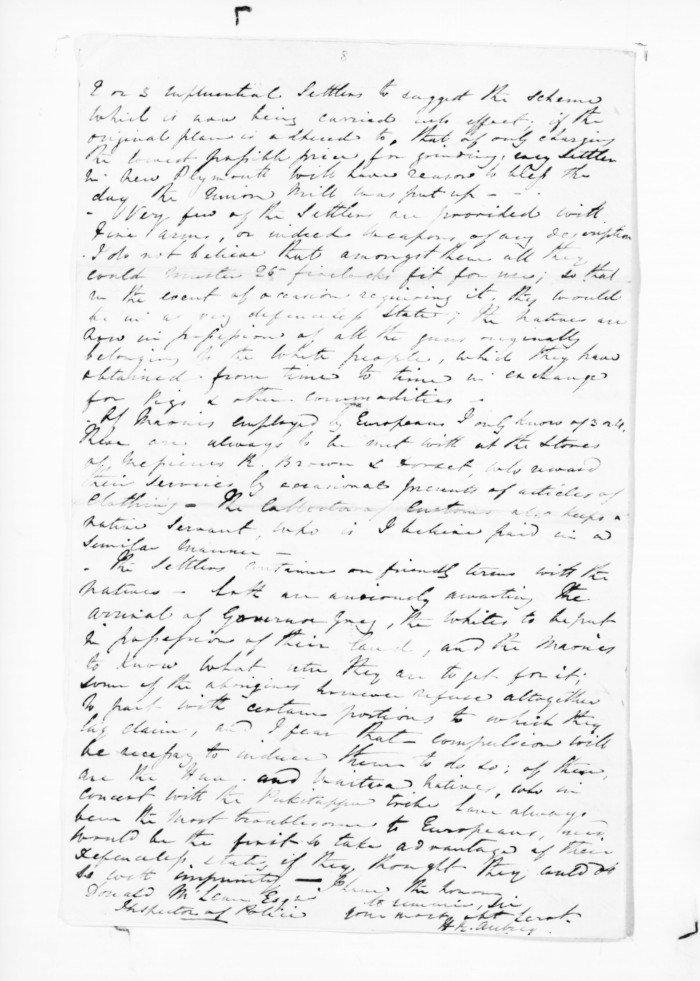 8
2 or 3 influential Settlers to suggest the scheme
which is now being carried into effect; if the
original plan is adhered to, that of only charging
the lowest possible price for grinding, every settler
in New Plymouth will have reason to bless the
day the Union Mill was put up - - .
- Very few of the Settlers are provided with
Fire arms, or indeed weapons of any description
. I do not believe that amongst them all they
could muster 25 firelocks fit for use; so that
in the event of occasion requiring it, they would
be in a very defenceless state; the Natives are
now in possession of all the guns originally
belonging to the White people, which they have
obtained from time to time in exchange
for Pigs & other commodities -
. Of Maories employed by Europeans I only know of 3 or 4.
These are always to be met with at the Stores
of Messieurs R. Brown & Dorset, who reward
their services by occasional presents of articles of
Clothing - The Collector of Customs also keeps a
native Servant, who is I believe paid in a
similar manner -
- The Settlers continue on friendly terms with the
Natives - both are anxiously awaiting the
arrival of Governor Grey, the Whites to be put
in possession of their land, and the Maories
to know what utu they are to get for it;
some of the aborigines however refuse altogether
to part with certain portions to which they
lay claim, and I fear that compulsion will
be necessary to induce them to do so; of these,
are the Hua and Waitera natives, who in
concert with the Puketappu tribe have always
been the most troublesome to Europeans, and
would be the first to take advantage of their
Defenceless state, if they thought they could do
so with impunity - I have the honor
to remain, Sir
Donald McLean Esqre
Inspector of Police
Your most obt Servt.
H R. Aubrey.